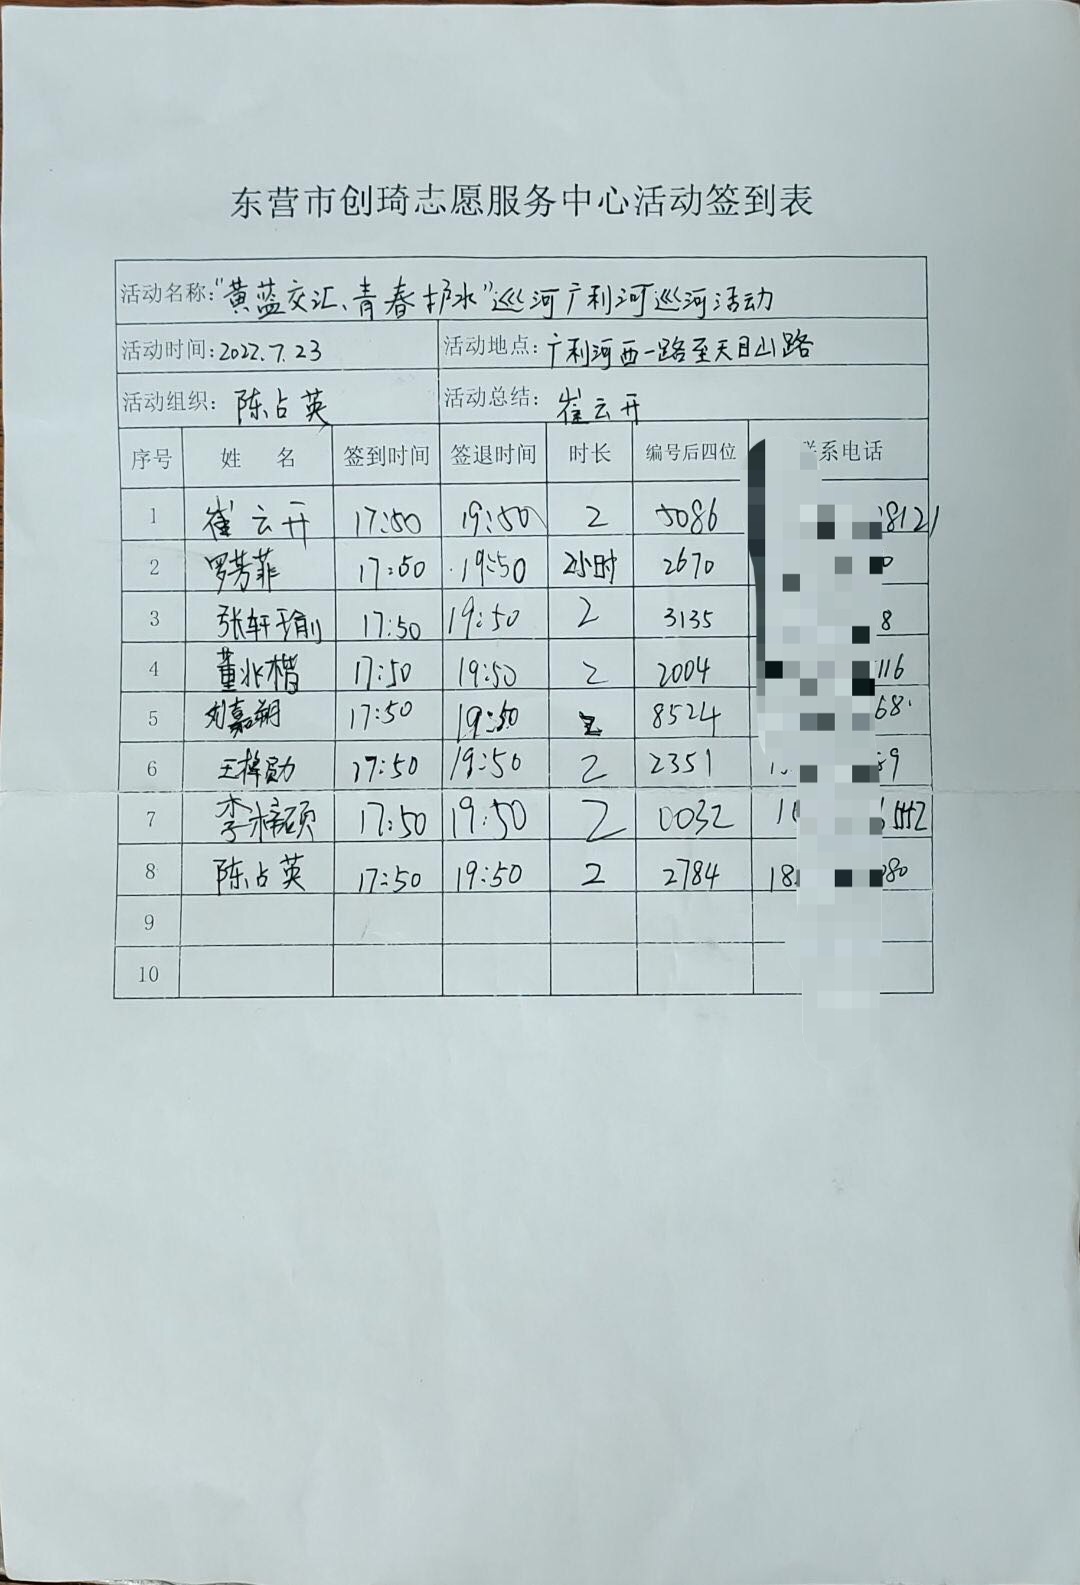 东营市创琦志愿服务中心活动签到表
活动名称:"黄蓝交汇、青春护水"巡河广利河巡河活动
活动时间:2022.7.23 活动地点:广利河西一路至天目山路
活动组织: 陈占英 活动总结: 崔云开
序号 姓 名 签到时间 签退时间 时长 编号后四位 系电话
1 崔云开 17:50 19:50 2 5086 8121
2 罗芳菲 17:50 19:50 2小时 2670 0
3 张轩瑜 17:50 19:50 2 3135 8
4 董兆楷 17:50 19:50 2 2004 116
5 刘嘉朔 17:50 19:50 2 8524 68
6 17:50 19:50 2 2351 9
7 17:50 19:50 2 0032
8 陈占英 17:50 19:50 2 2784 18 80
9
10